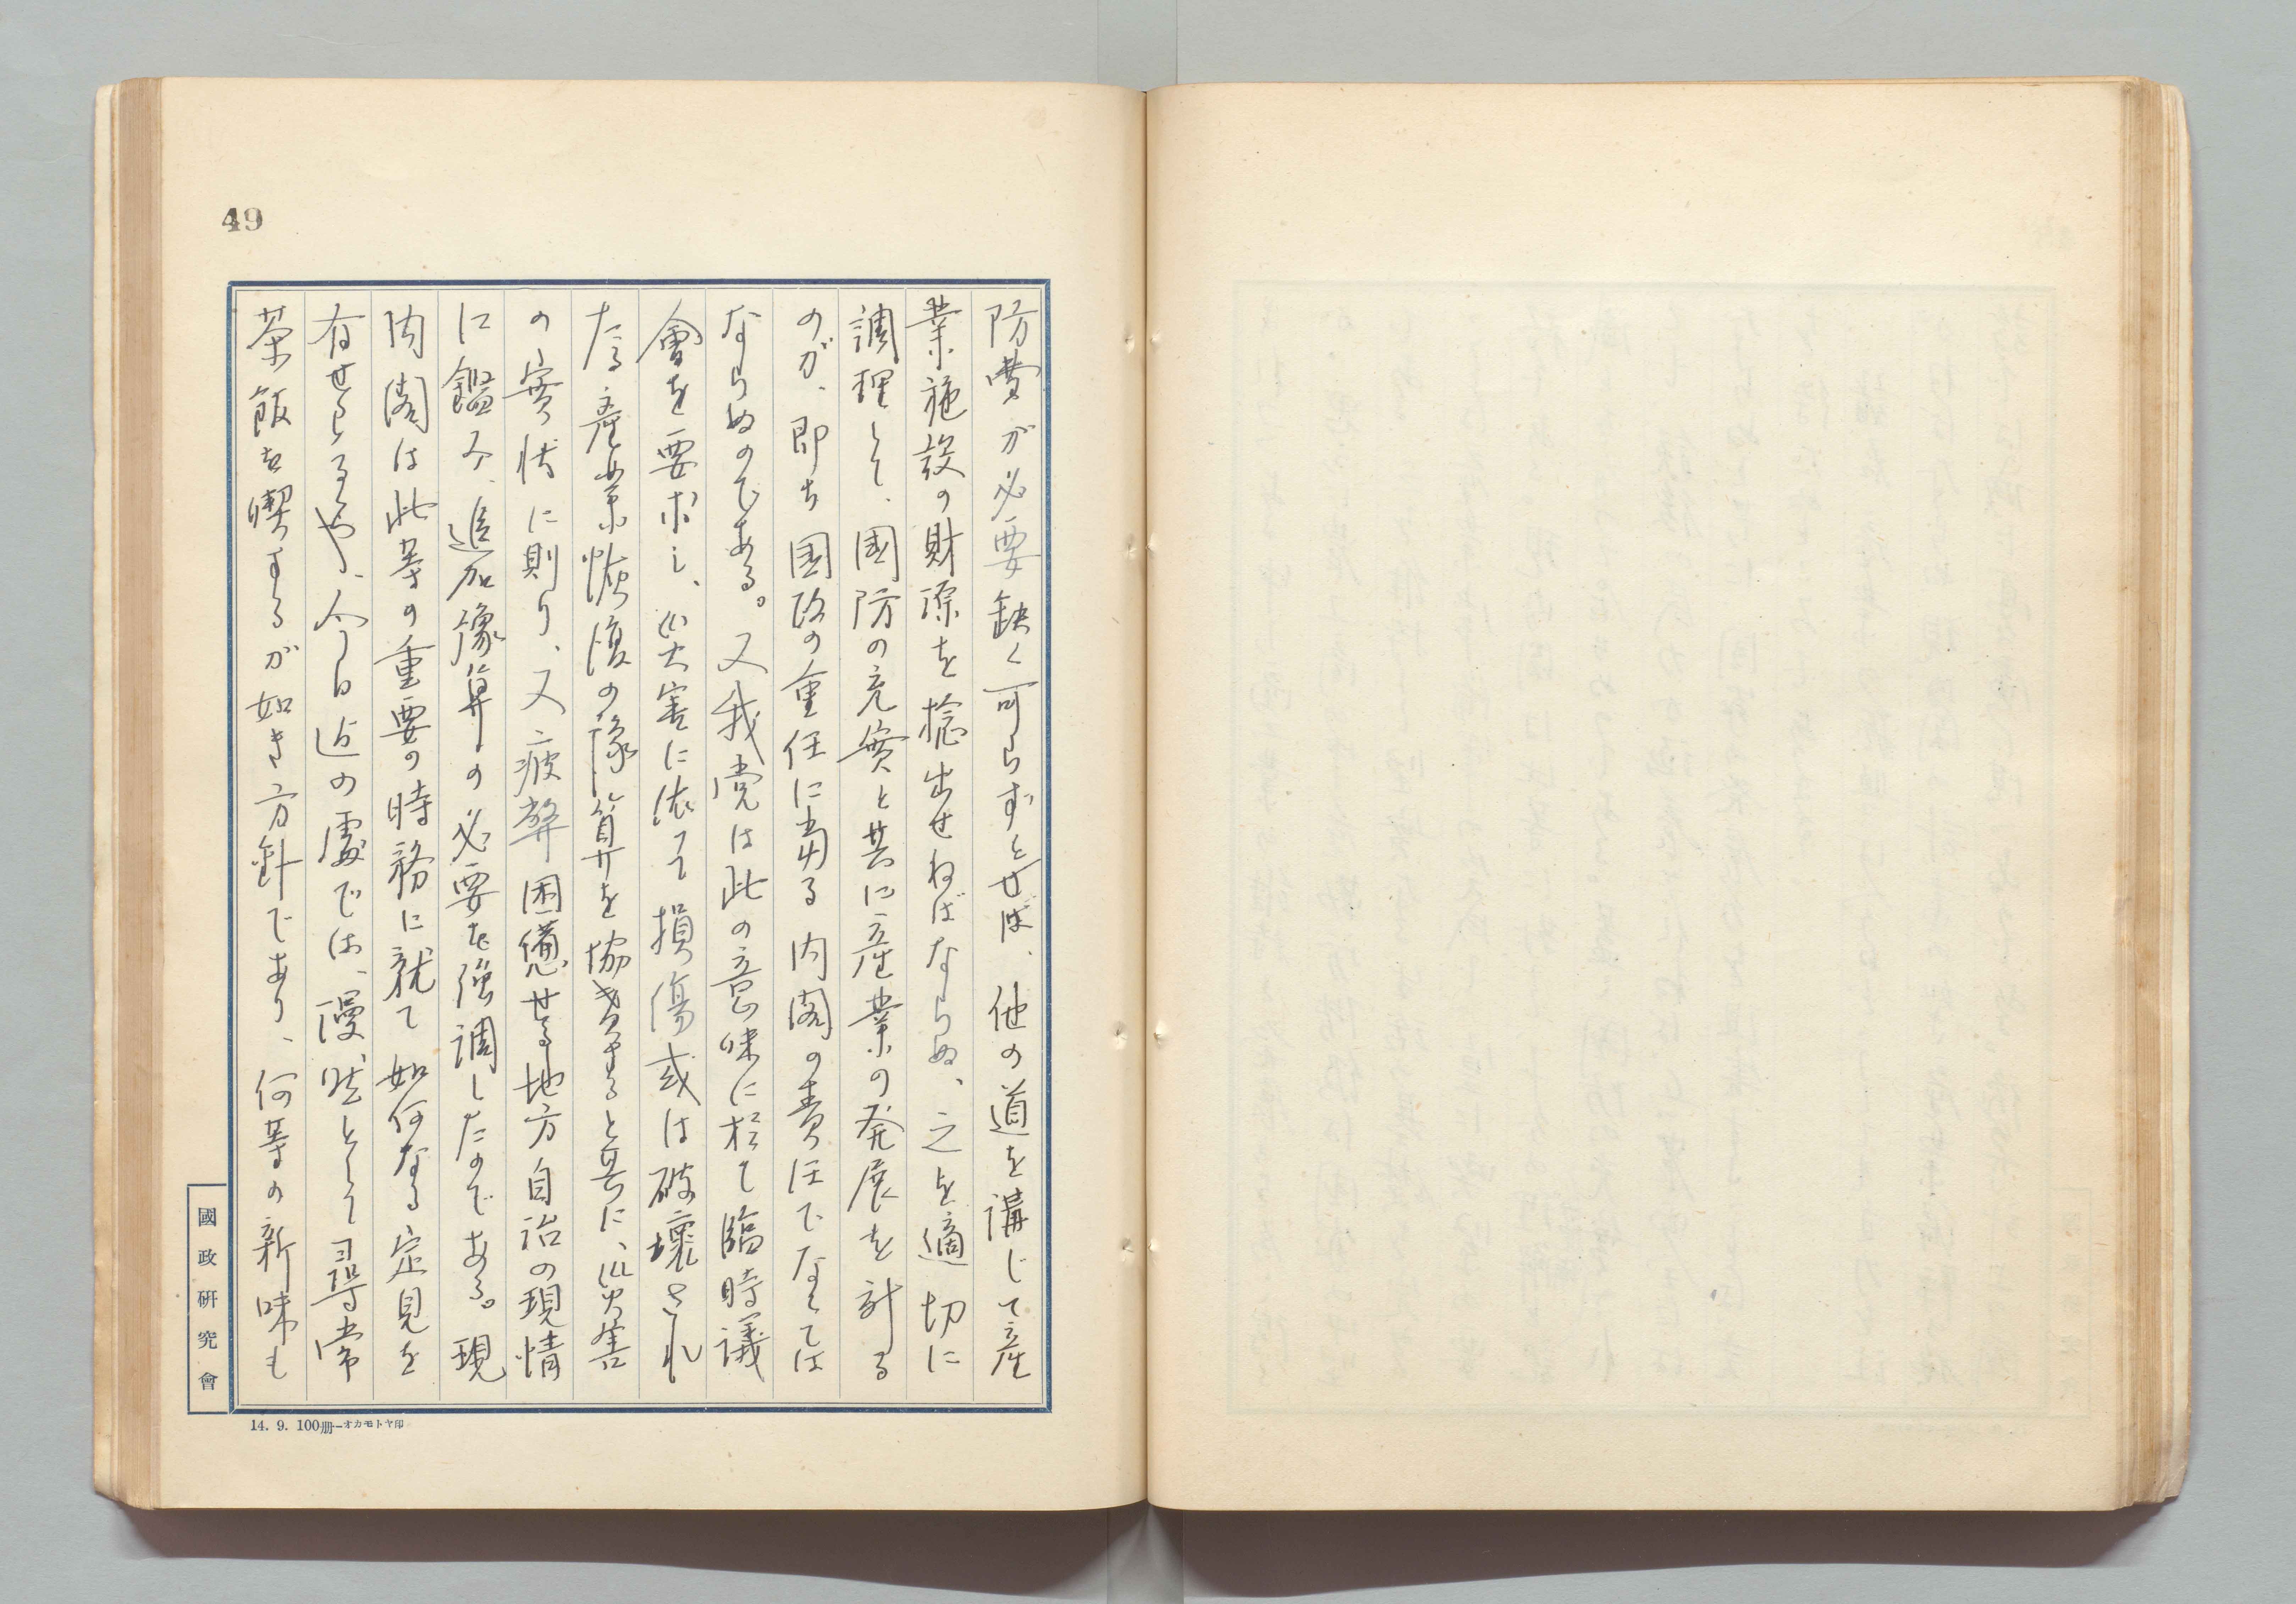 49
防費が必要缺く可らずとせば、他の道を講じて産
業施設の財源を捻出せねばならぬ、之を適切に
調理して、國防の充實と共に産業の発展を計る
のが、即ち國政の重任に當る内閣の責任でなくては
ならぬのである。又我党は此の意味に於て臨時議
會を要求し、災害に依て損傷或は破壊され
たる産業恢復の豫算を協賛すると共に、災害
の實状に則り、又疲弊困憊せる地方自治の現情
に鑑み、追加豫算の必要を強調したのである。現
内閣は此等の重要の時務に就て如何なる定見を
有せらるゝや、今日迄の處では、漫然として尋常
茶飯を喫するが如き方針であり、何等の新味も
國政研究會
14. 9. 100册—オカモトヤ印